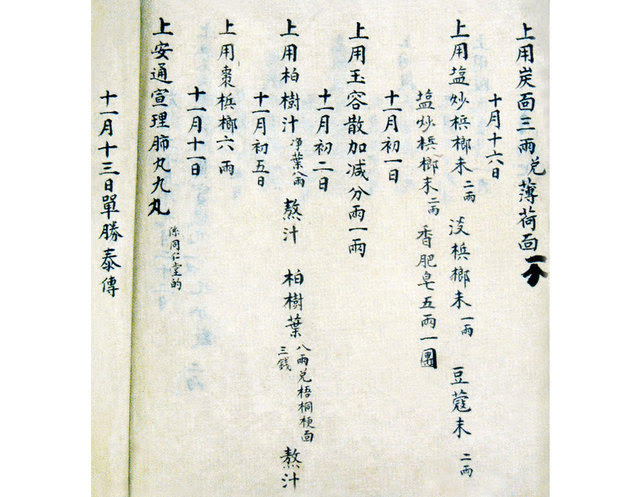 上用炭面三兩兑薄荷面一个
十月十六日
上用塩炒梹榔末二兩 淡梹榔末一兩 豆蔻末二兩
塩炒梹榔末二兩 香肥皂五兩一團
十一月初一日
上用玉容散加减分兩一兩
十一月初二日
上用柏樹汁净葉八兩 熬汁 柏樹葉八兩兑梧桐梗面三錢 熬汁
十一月初五日
上用棗梹榔六兩
十一月十一日
上安通宣理肺丸九丸 係同仁堂的
十一月十三日單勝泰傳